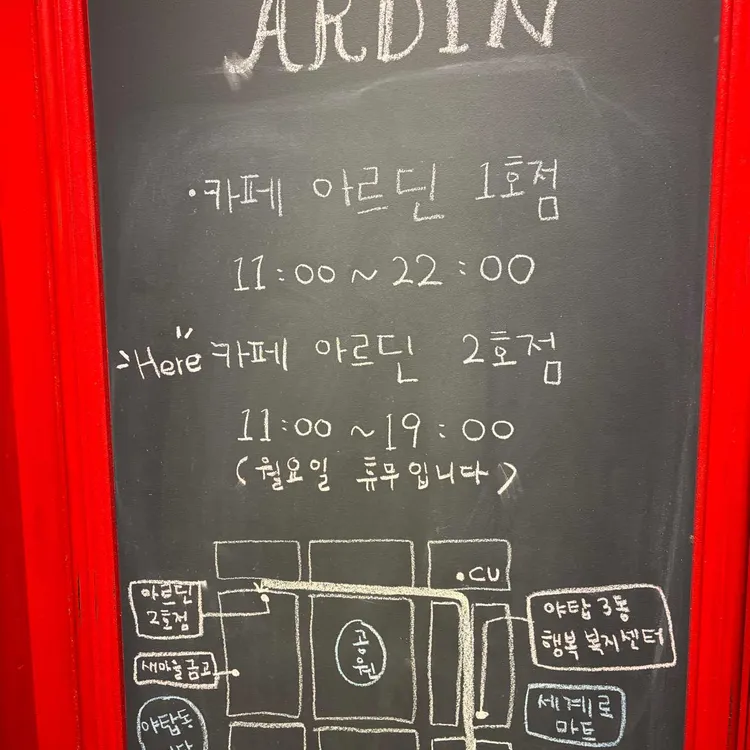 ARDIN
• 카페 아르딘 1호점
11:00 ~ 22:00
Here 카페 아르딘 2호점
11:00 ~ 19:00
(월요일 휴무입니다)
• CU
아르딘
2호점
야탑 3동
행복 복지센터
공원
새마을금고
세계로
마트
야탑동